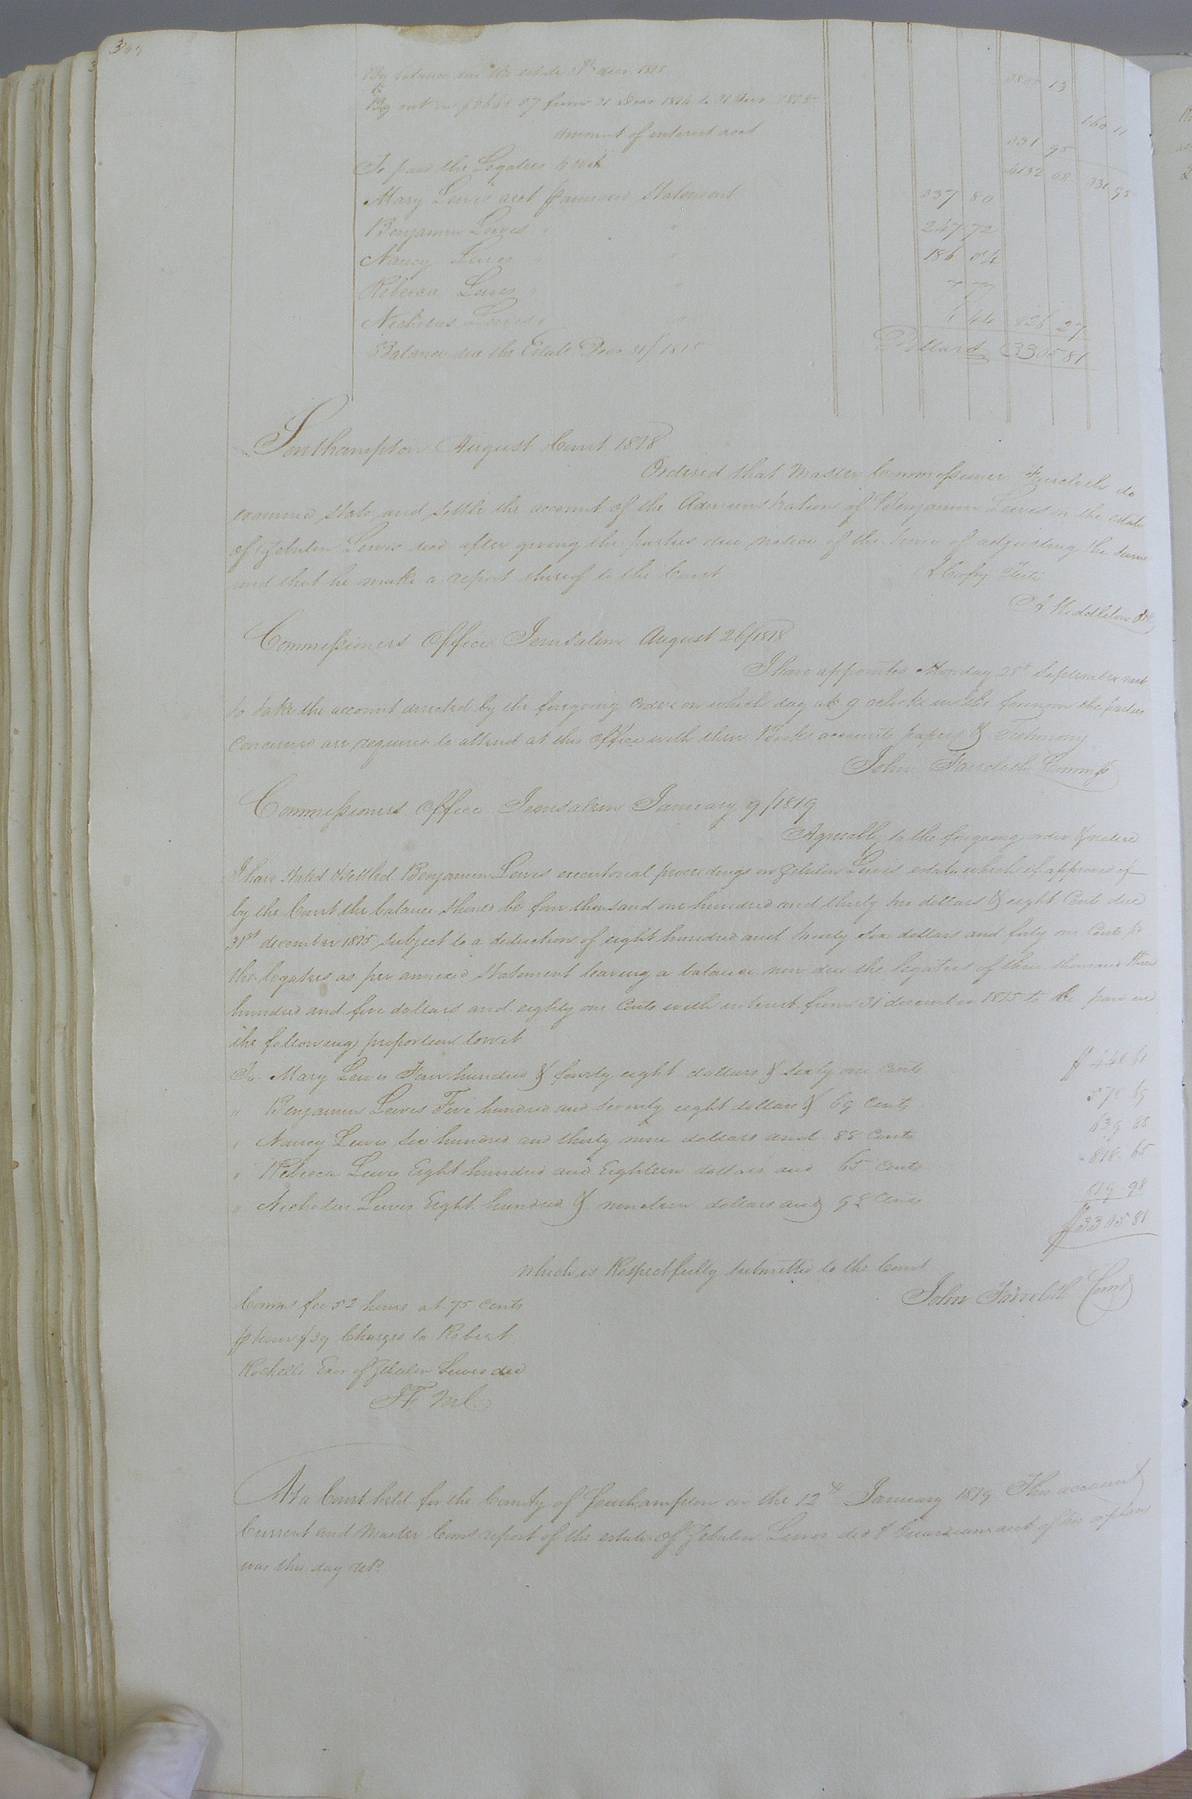 By balance due the estate 31st decr 1815 3800 13
By int on from 31 Decr 1814 to 31 Decr 1815 160 11
amount of interest acct 331 95
To paid the Legatees to wit 4132 08 331 95
Mary Lewis acct pr annexed Statement 337 80
Benjamin Lewis " " 247 72
Nancy Lewis " " 186 04
Rebecca Lewis " "
Nicholas Lewis " " 44 826 27
Balance due the Estate Decr 31/1815 Dollars 3305 81
Southampton August Court 1818
Ordered that Master Commissioner do
examine State and settle the account of the Administration of Benjamin Lewis on the estate
of Zebulon Lewis decd after giving the parties due notice of the time of adjusting the same
and that he make a report thereof to the Court
A Copy Teste
Middleton
Commissioners Office Jerusalem August 26/1818
I have appointed Monday 28th September next
to take the account directed by the foregoing order on which day at 9 oClock in the forenoon the parties
concerned are required to attend at this office with their Books accounts papers & Testimony
John Commr
Commissioners Office Jerusalem January 9/1819
Agreeably to the foregoing order & notice
I have Stated & Settled Benjamin Lewis executorial proceedings on Zebulon Lewis estate which if approved of
by the Court the balance should be four thousand one hundred and thirty two dollars & eight Cents due
31st december 1815 subject to a deduction of eight hundred and twenty six dollars and Cents to
the legatees as per annexed Statement leaving a balance now due the legatees of three thousand three
hundred and five dollars and eighty one Cents with interest from 31 december 1815 to be paid in
the following proportion towit
To Mary Lewis Four hundred & fourty eight dollars & sixty one Cents $448 61
" Benjamin Lewis Five hundred and seventy eight dollars & 69 Cents 578 69
" Nancy Lewis Six hundred and thirty nine dollars and 88 Cents 639 88
" Rebecca Lewis Eight hundred and Eighteen dollars and 65 Cents 818 65
" Nicholas Lewis Eight hundred & nineteen dollars and 98 Cents 819 98
$3305 81
which is Respectfully submitted to the Court
John Comr
Comrs fee 52 hours at 75 Cents
pr hour $39 Charged to Robert
Rochelle Exor of Zebulon Lewis decd
At a Court held for the County of Southampton on the 12th January 1819 This account
Current and Master Coms report of the estate of Zebulon Lewis decd & Guardian acct of his
was this day retd